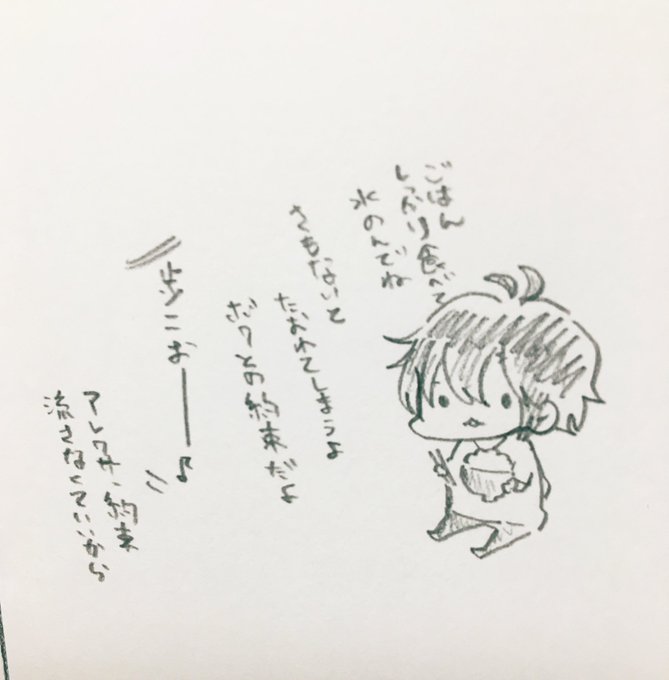 ごはん
しっかり食べて
水のんでね
さもないと
たおれてしまうよ
ボクとの約束だよ
歩こおー♪
アレクサ、約束
流さなくていいから